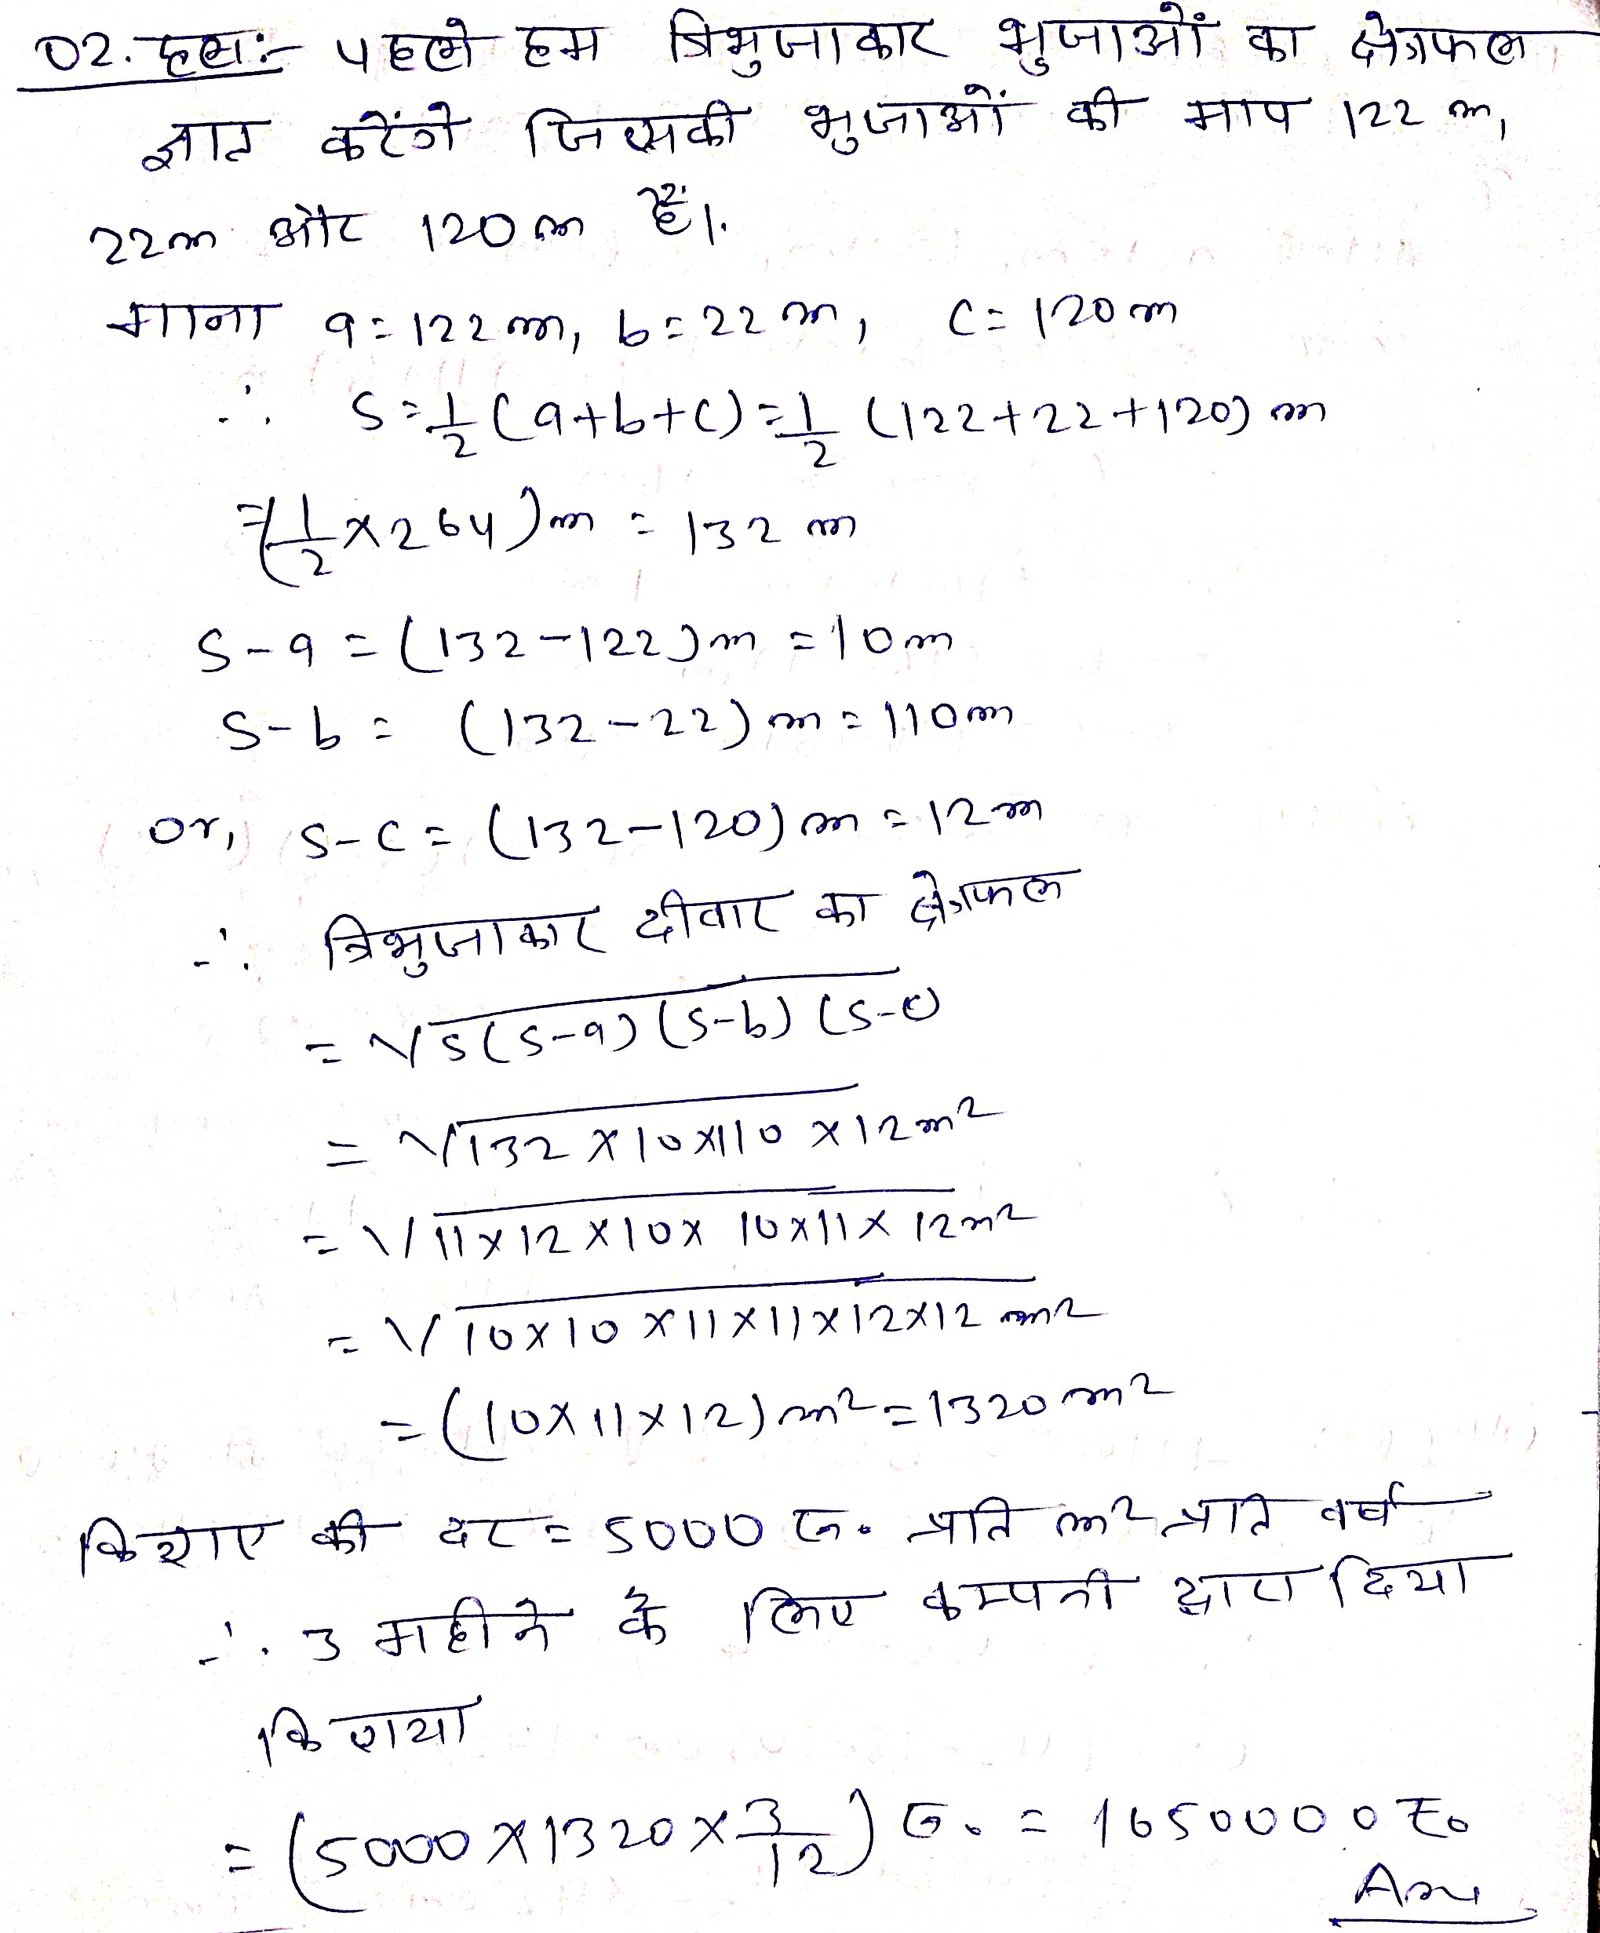 02. हल:- पहले हम त्रिभुजाकार भुजाओं का क्षेत्रफल
ज्ञात करेंगे जिसकी भुजाओं की माप 122 m,
22m और 120 m हैं।
माना a = 122 m, b = 22 m, c = 120 m
∴ S = 1/2 (a+b+c) = 1/2 (122+22+120) m
= (1/2 × 264) m = 132 m
S-a = (132-122) m = 10 m
S-b = (132-22) m = 110 m
or, S-c = (132-120) m = 12 m
∴ त्रिभुजाकार दीवार का क्षेत्रफल
= √s(s-a)(s-b)(s-c)
= √132 × 10 × 110 × 12 m²
= √11 × 12 × 10 × 10 × 11 × 12 m²
= √10 × 10 × 11 × 11 × 12 × 12 m²
= (10 × 11 × 12) m² = 1320 m²
किराए की दर = 5000 रु. प्रति m² प्रति वर्ष
∴ 3 महीने के लिए कम्पनी द्वारा दिया
किराया
= (5000 × 1320 × 3/12) रु. = 1650000 रु०
Ans